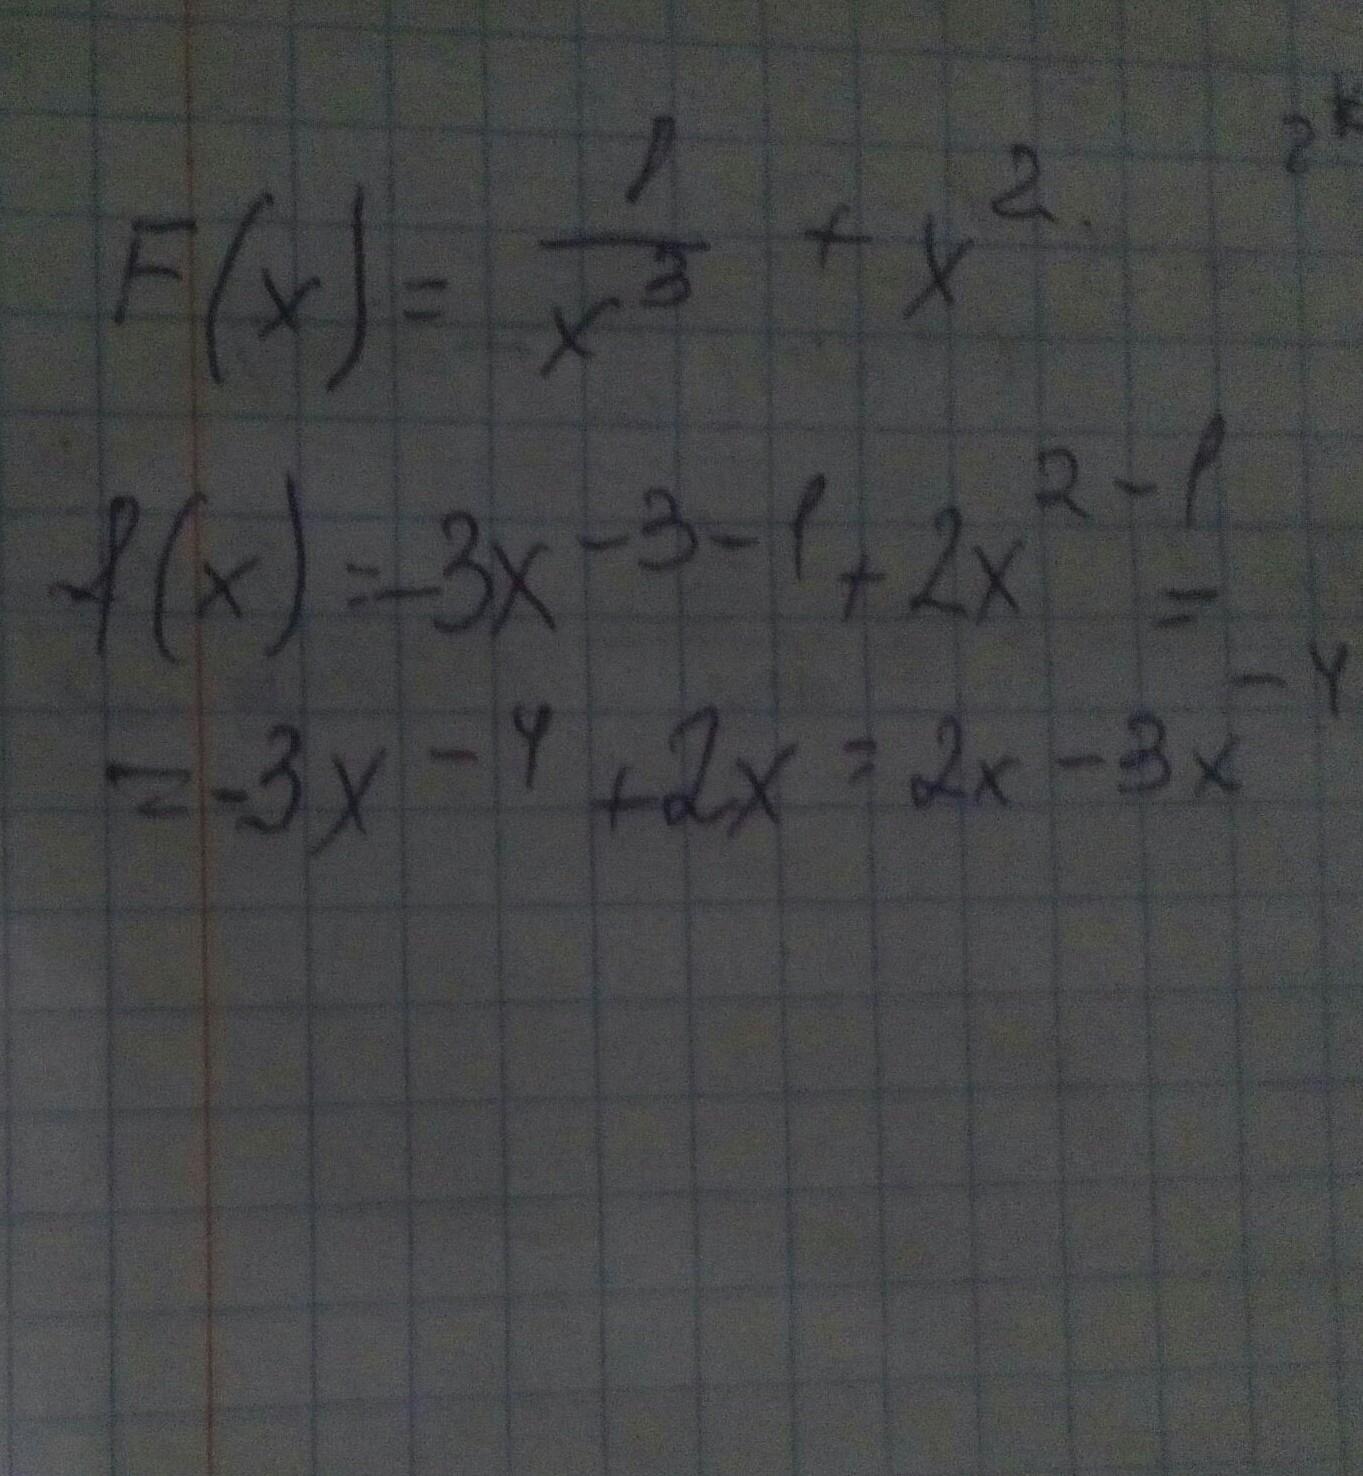 F(x) = 1/x³ + x²
f(x) = -3x⁻³⁻¹ + 2x²⁻¹ =
= -3x⁻⁴ + 2x = 2x - 3x⁻⁴